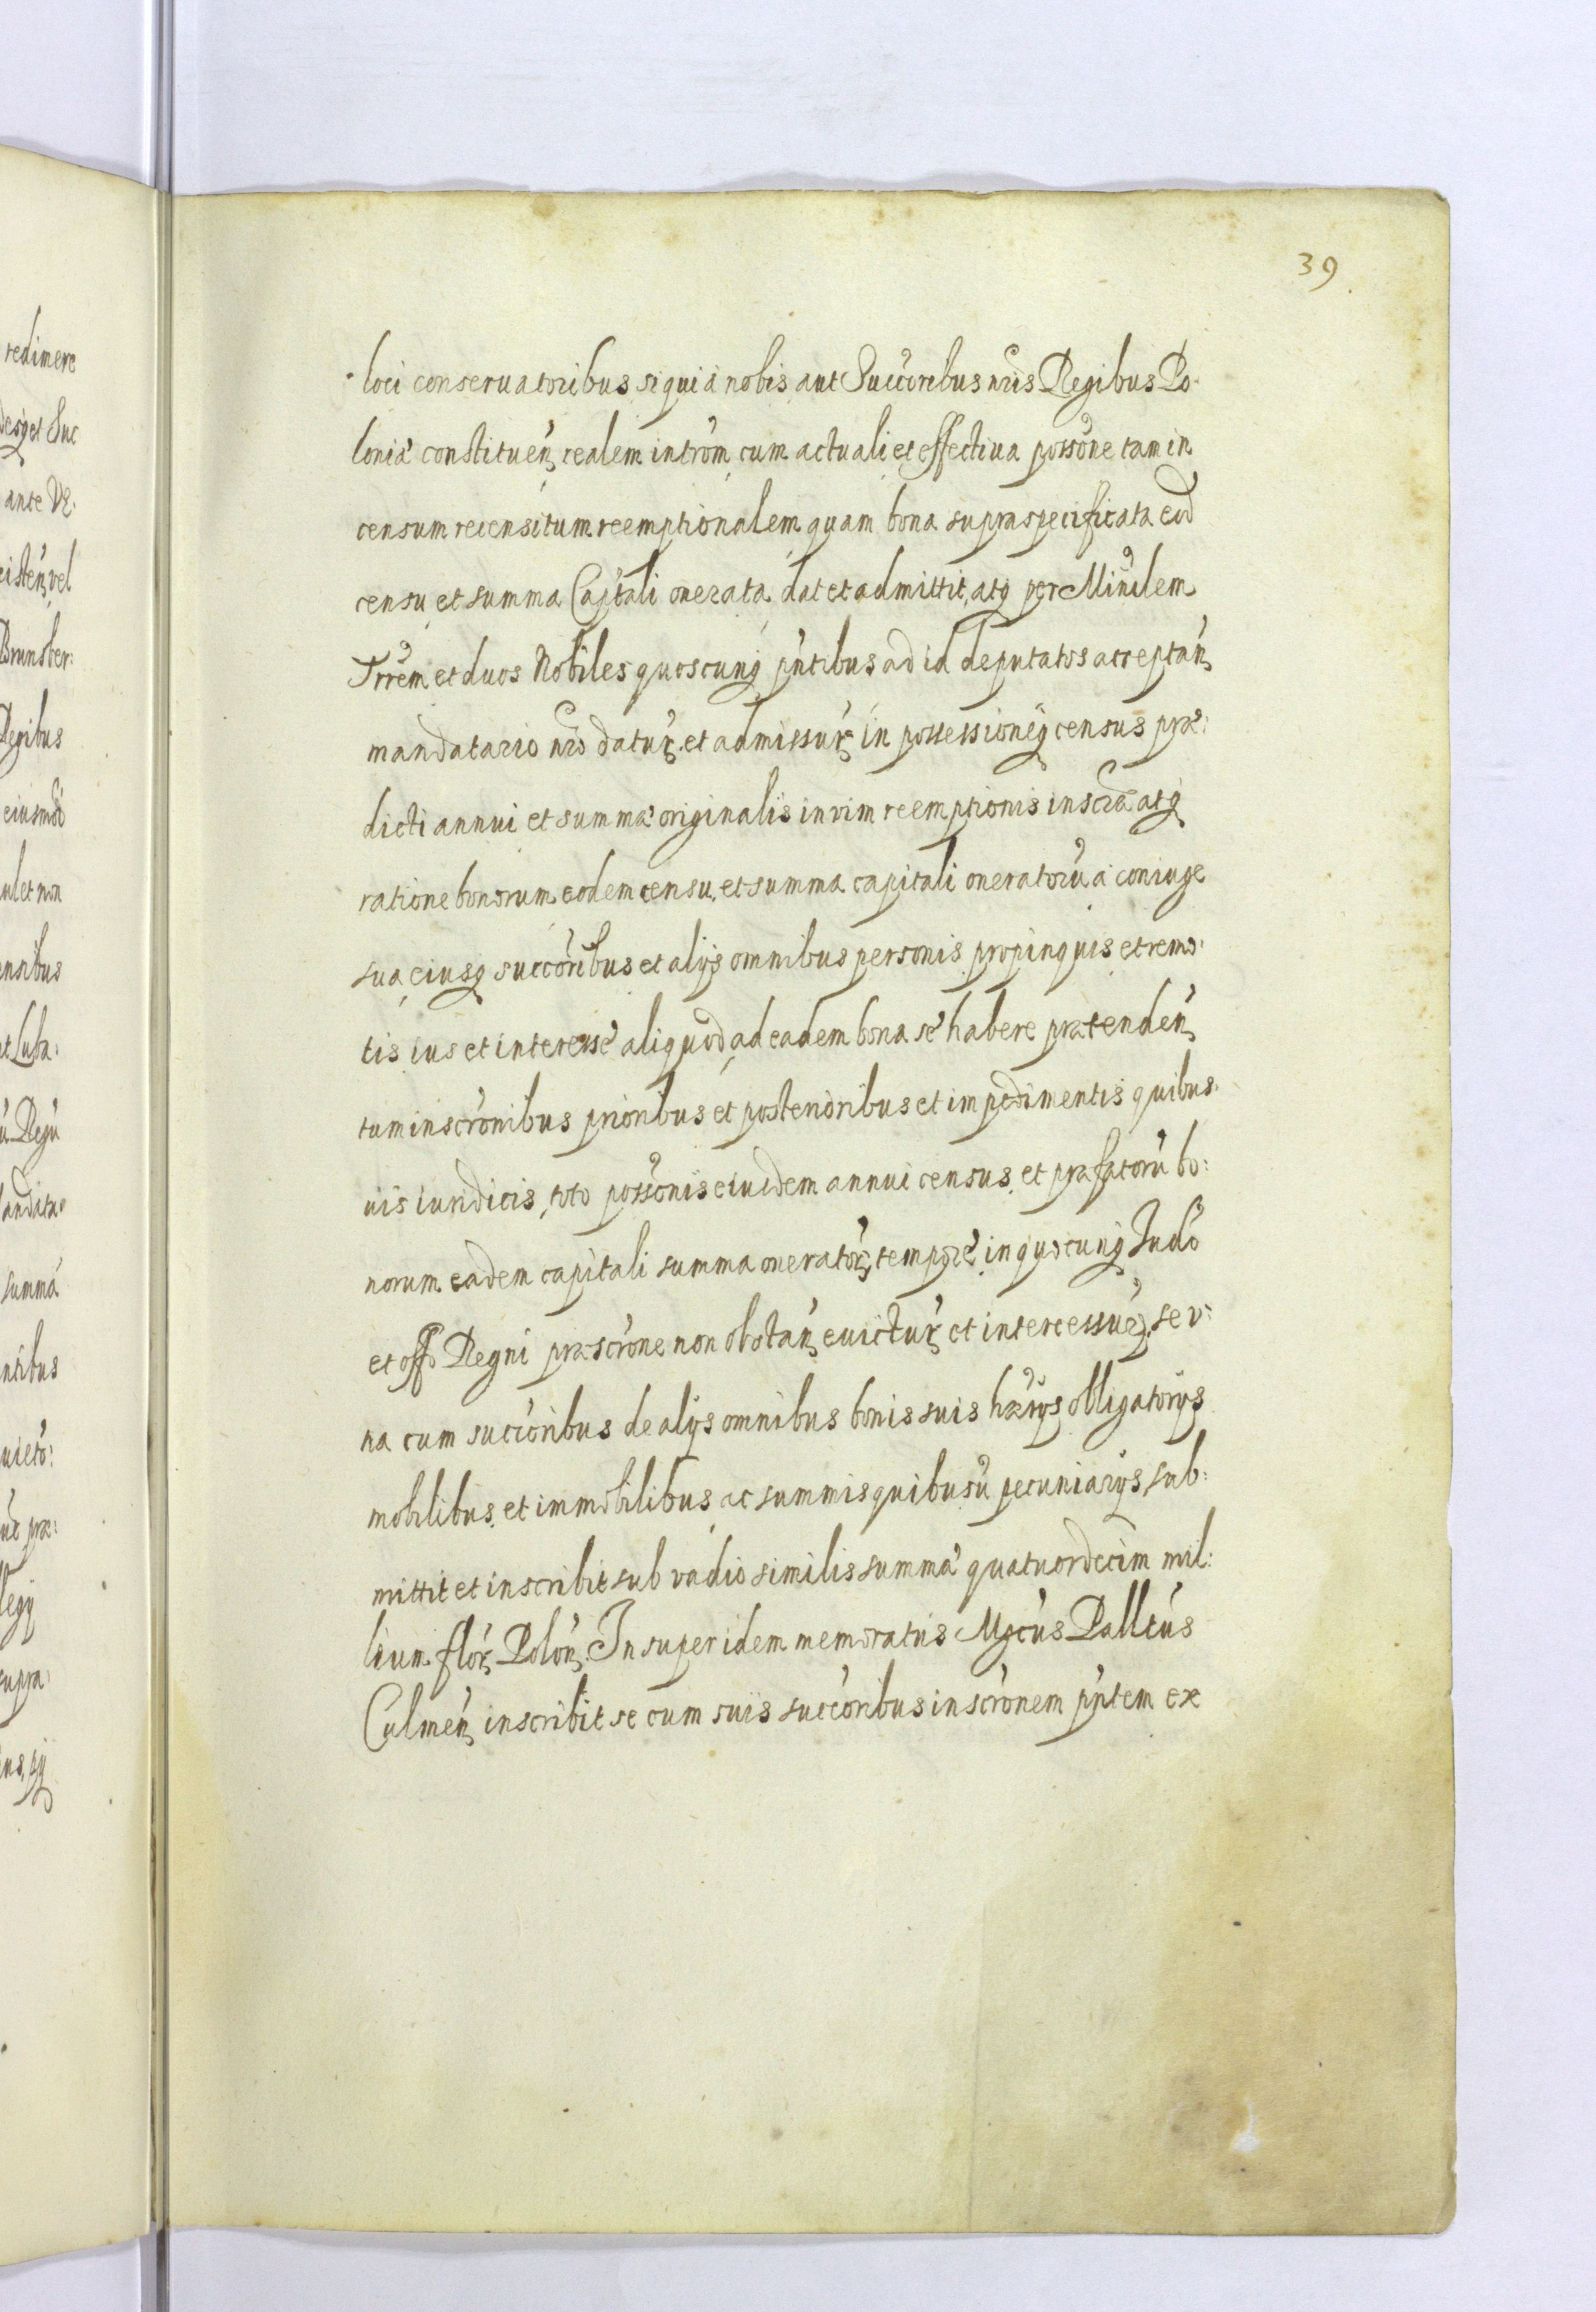 39
redimere
loci conseruatoribus si qui à nobis aut Succoribus nris Regibus Po-
loniæ constituen. realem introm cum actuali et effectiua possone tam in
censum recensitum reemptionalem quam bona supraspecificata eod
censu et summa Capitali onerata dat et admittit, atq per Minilem
Trrem et duos Nobiles quoscunq pntibus ad id deputatos acceptan.
mandatario nro datur. et admissur. in possessioneq census præ:
dicti annui et summæ originalis in vim reemptionis inscræ atq
ratione bonorum eodem censu et summa capitali oneratorũ a coniuge
sua, eiusq succoribus et alijs omnibus personis propinquis et remo:
tis ius et interesse aliquod ad eadem bona se habere prætenden.
tum inscronibus prioribus et posterioribus et impedimentis quibus
uis iuridicis, toto possonis eiusdem annui census et præfatorũ bo:
norum eadem capitali summa onerator. tempore, in quocunq Judo
et offo Regni præscrone non obstan. euictur. et intercessur. se v:
na cum succoribus de alijs omnibus bonis suis hærijs obligatorijs
mobilibus et immobilibus ac summis quibusũ pecuniarijs sub:
mittit et inscribit sub vadio similis summæ quatuordecim mil:
lium flor. Polon. Insuper idem memoratus Mgcus Palltus
Culmen. inscribit se cum suis succoribus inscronem pntem ex